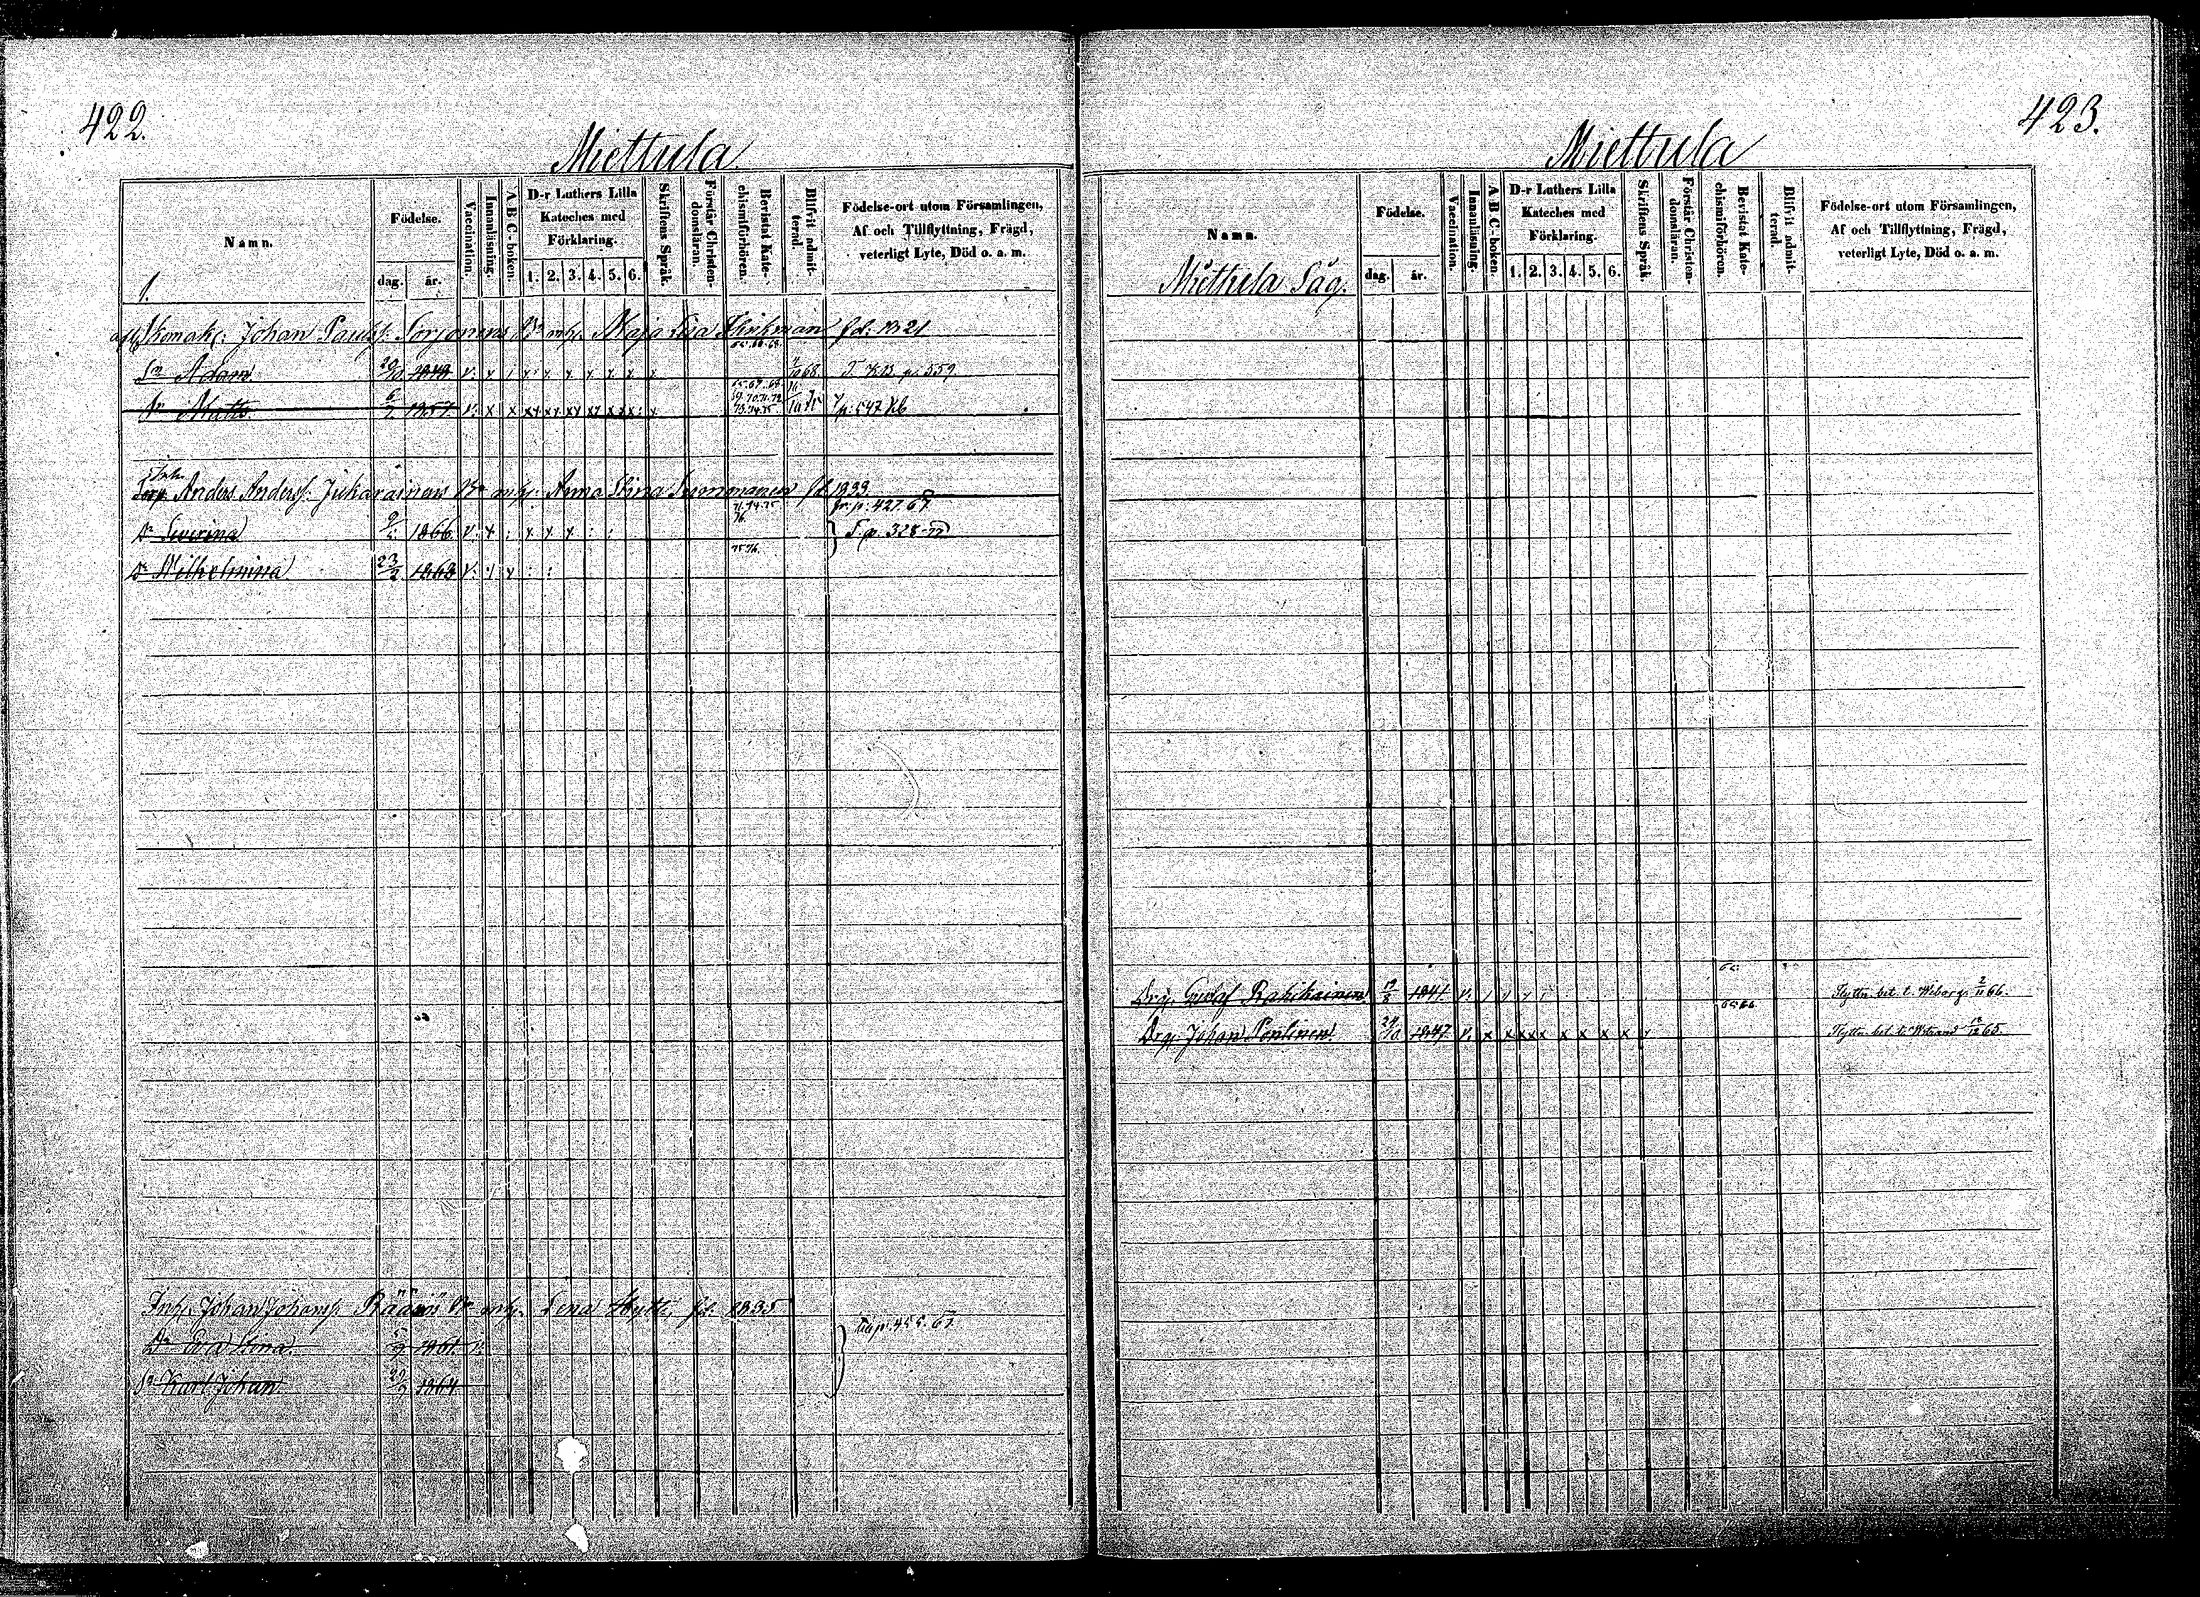 422.
Miettula
Namn.
Födelse.
dag. år.
Vaccination.
Innanläsning.
A.B.C.-boken.
D-r Luthers Lilla
Kateches med
Förklaring.
1. 2. 3. 4. 5. 6.
Skriftens Språk.
Förstår Christen-
domsläran.
Bevistat Kate-
chismiförhören.
Blifvit admit-
terad.
Födelse-ort utom Församlingen,
Af och Tillflyttning, Frägd,
veterligt Lyte, Död o. a. m.
1.
Skomak: Johan Paulss: Sorjonens Maja Lisa fd: 1821
Sn Adam 1848 v: x x x x x x x 68 T. KB p. 559
Sn Matts 6/2 1857 v: x x xx xx xx xx xx x: x 69.70.71.72 73.74.75 p: 547 Kb
Anders Anderss: Jukarainens Anna Stina Summanen fd 1833
fr: p: 427. 67.
Dr Severina 1866 v: x : x x x : : 76 T. p. 328
7576.
Dr Wilhelmina 23/2 1868 v: x x : :
Inh. Johan Johanss: Räänös Lena Hytti, fd. 1835
Dr Eva Stina 1861 v: p: 455. 67.
Sn Karl Johan 1864
423.
Miettula
Namn.
Miettula Såg.
Födelse.
dag. år.
Vaccination.
Innanläsning.
A.B.C.-boken.
D-r Luthers Lilla
Kateches med
Förklaring.
1. 2. 3. 4. 5. 6.
Skriftens Språk.
Förstår Christen-
domsläran.
Bevistat Kate-
chismiförhören.
Blifvit admit-
terad.
Födelse-ort utom Församlingen,
Af och Tillflyttning, Frägd,
veterligt Lyte, Död o. a. m.
Drg. Gustaf Rahikainen 1841. v: Flyttn. bet. t. Wiborg 2/11 66.
Drg. Johan Pentinen 1847 v. x x xx x x x x x x Flyttn. bet. t. Wstrand 65